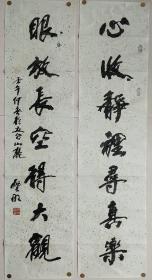 心收靜裡尋真樂
眼放長空得大觀
壬午仲春於五台山麓